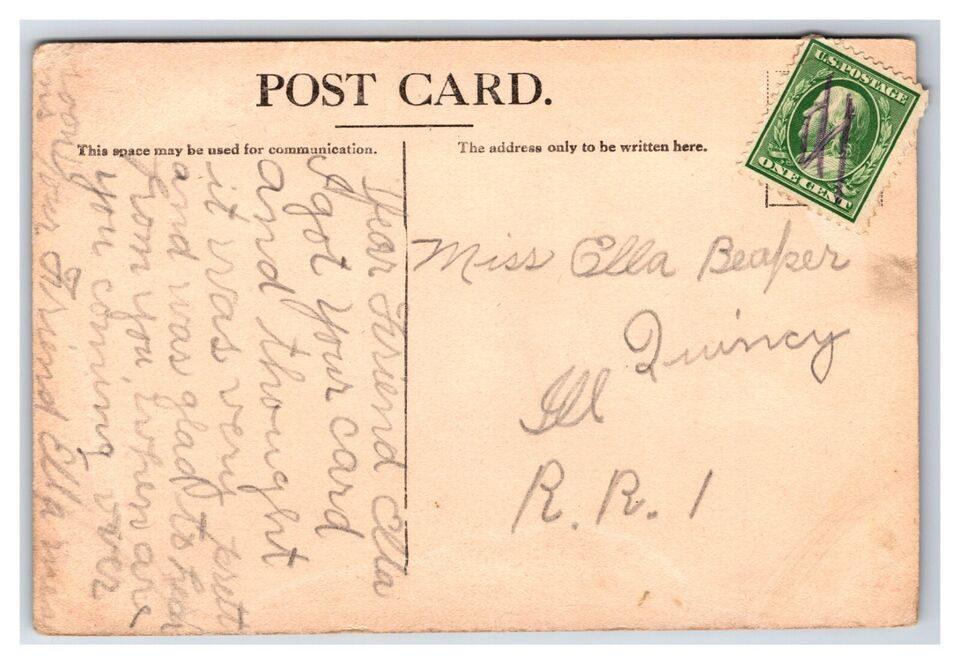 POST CARD.
This space may be used for communication.
The address only to be written here.
U.S. POSTAGE
ONE CENT
Dear Friend Ella
I got your card
and thought
it was very prett
and was glad to
from you, when are
you coming over
your Friend Ella
Miss Ella Beaper
Quincy
Ill
R. R. 1